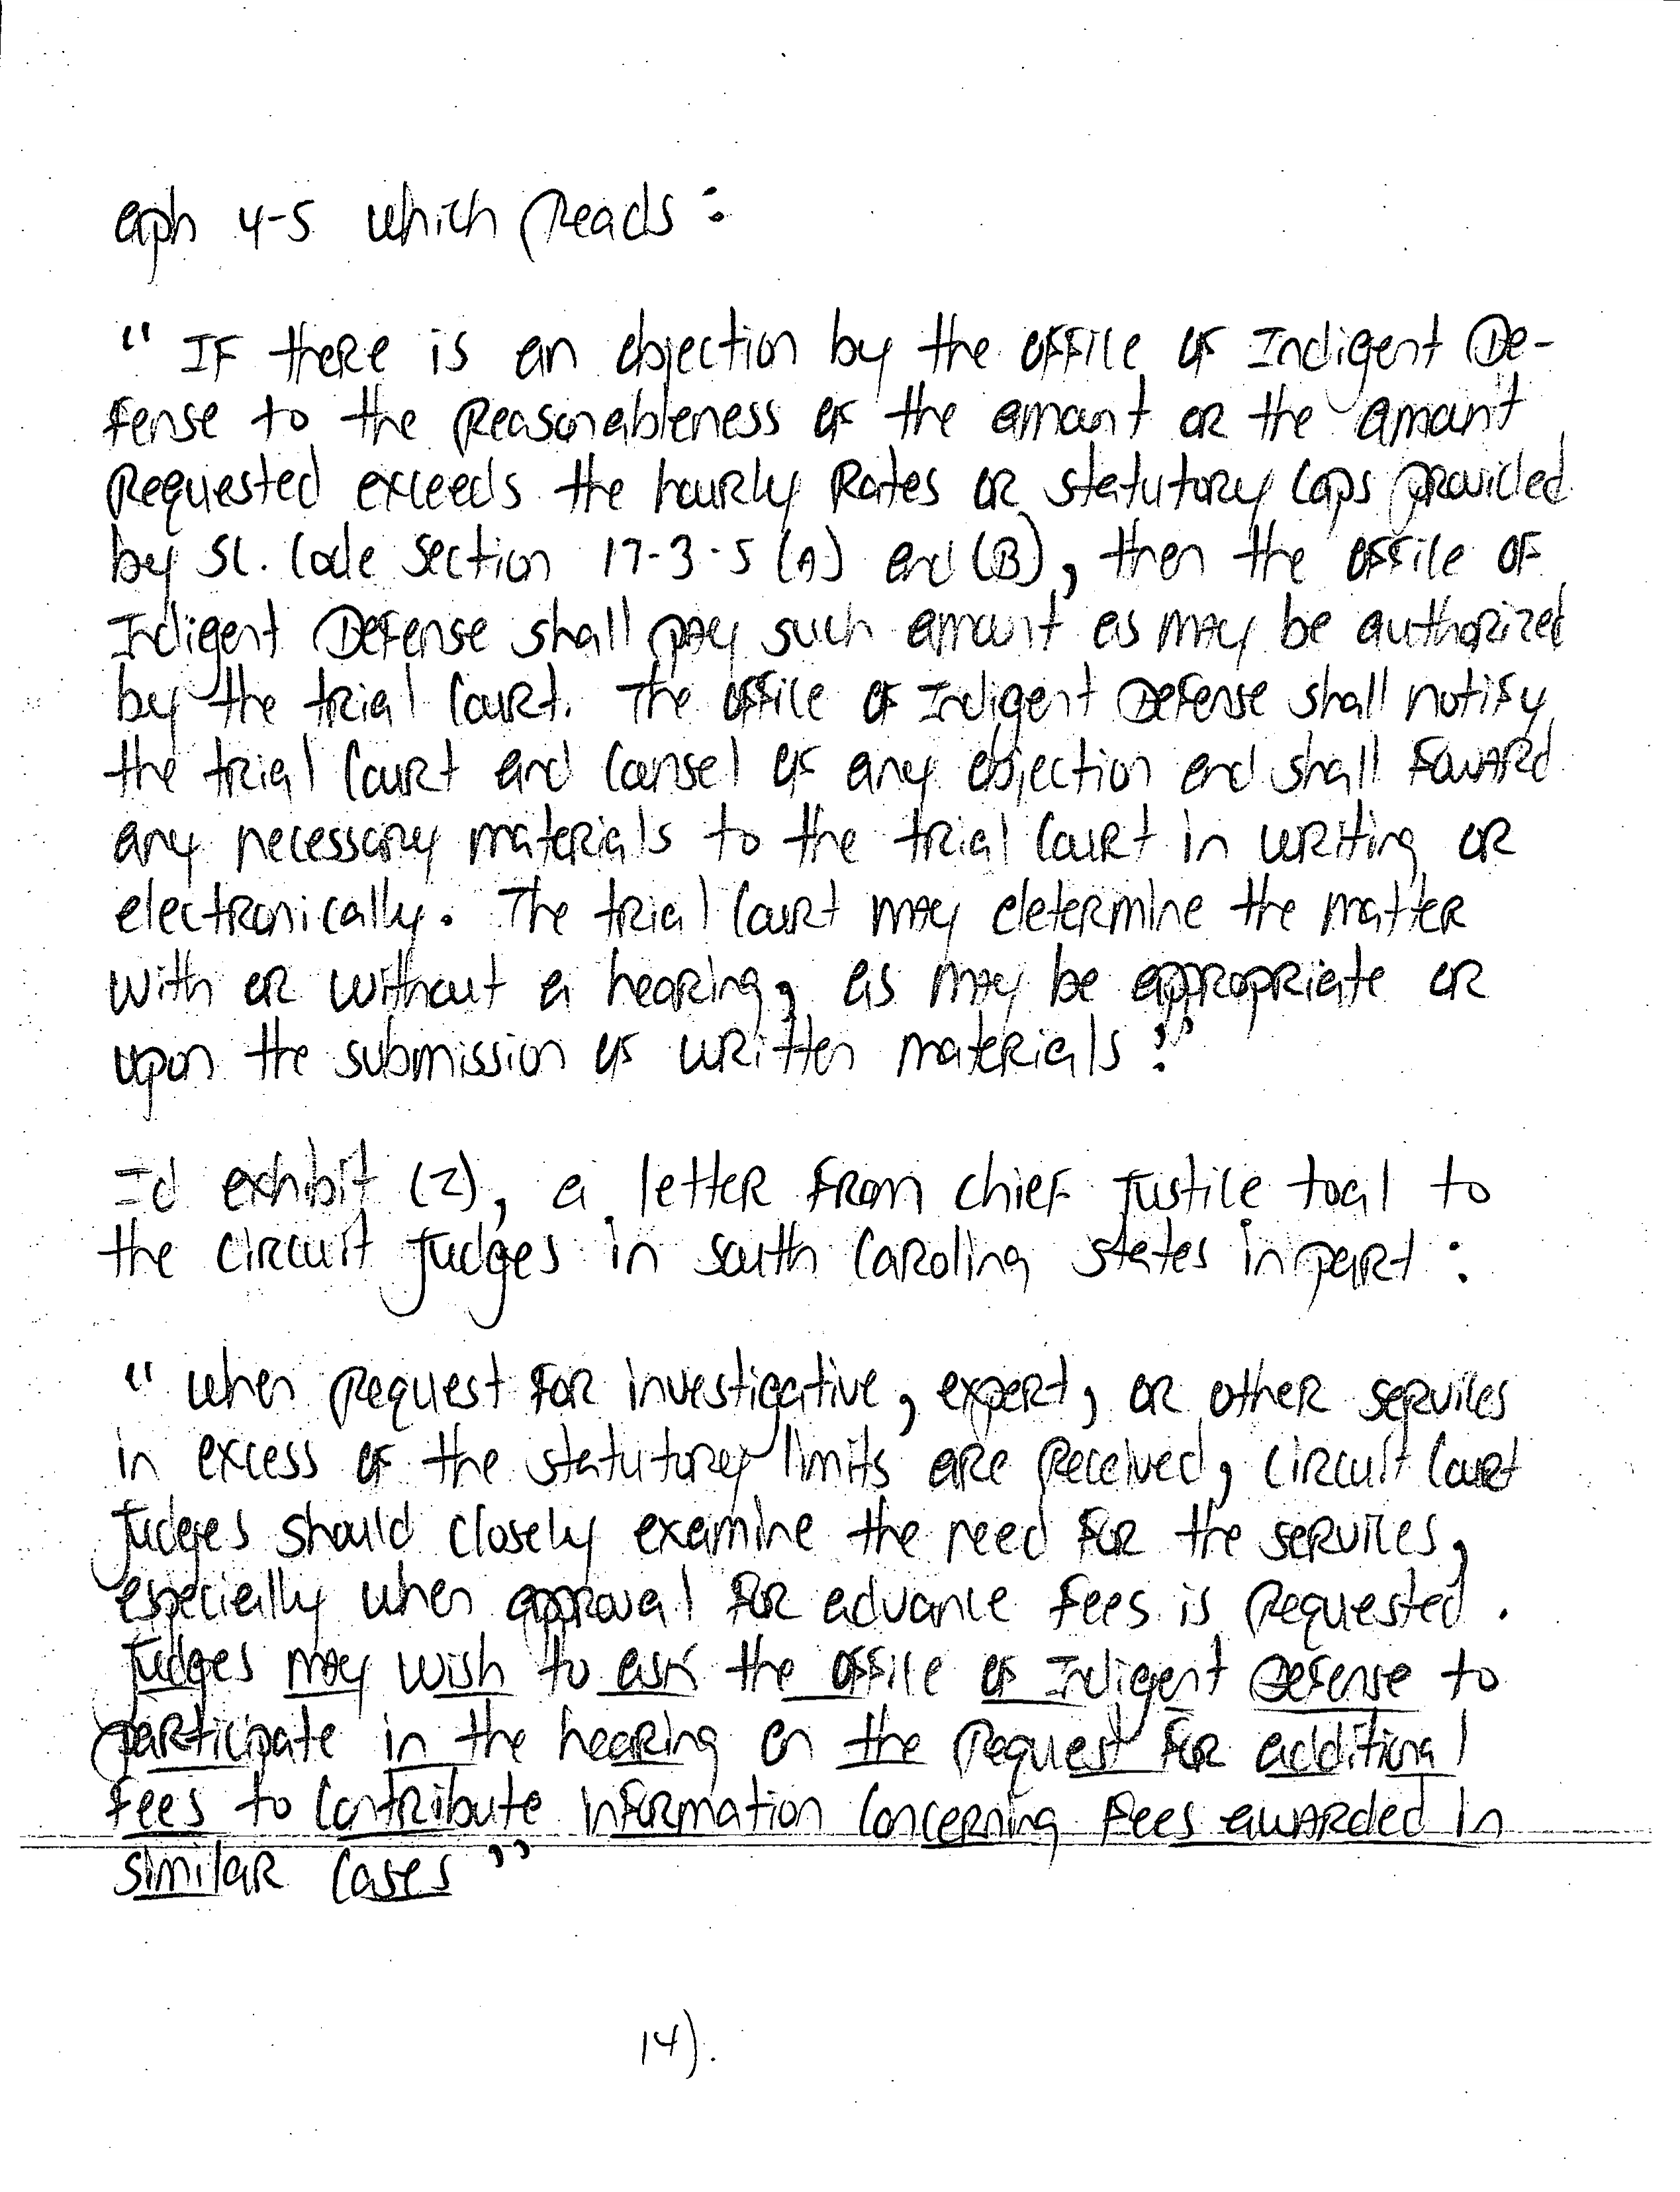 aph 4-5 which Reads:
" IF there is an objection by the office of Indigent De-
fense to the Reasonableness of the amount or the amount
Requested exceeds the hourly Rates or statutory Caps provided
by SC. Code Section 17-3-5 (A) and (B), then the office of
Indigent Defense shall pay such amount as may be authorized
by the trial Court. The office of Indigent Defense shall notify
the trial Court and Counsel of any objection and shall foward
any necessary materials to the trial Court in writing or
electronically. The trial Court may determine the matter
with or without a hearing, as may be appropriate or
upon the submission of written materials."
Id exhibit (2), a letter from chief Justice toal to
the circuit Judges in south Carolina states in part:
" when Request for investigative, expert, or other services
in excess of the statutory limits are Received, circuit Court
Judges should closely examine the need for the services,
especially when approval for advance fees is Requested.
Judges may wish to ask the office of Indigent Defense to
participate in the hearing on the Request for additional
fees to Contribute information Concerning fees awarded in
similar Cases"
14).